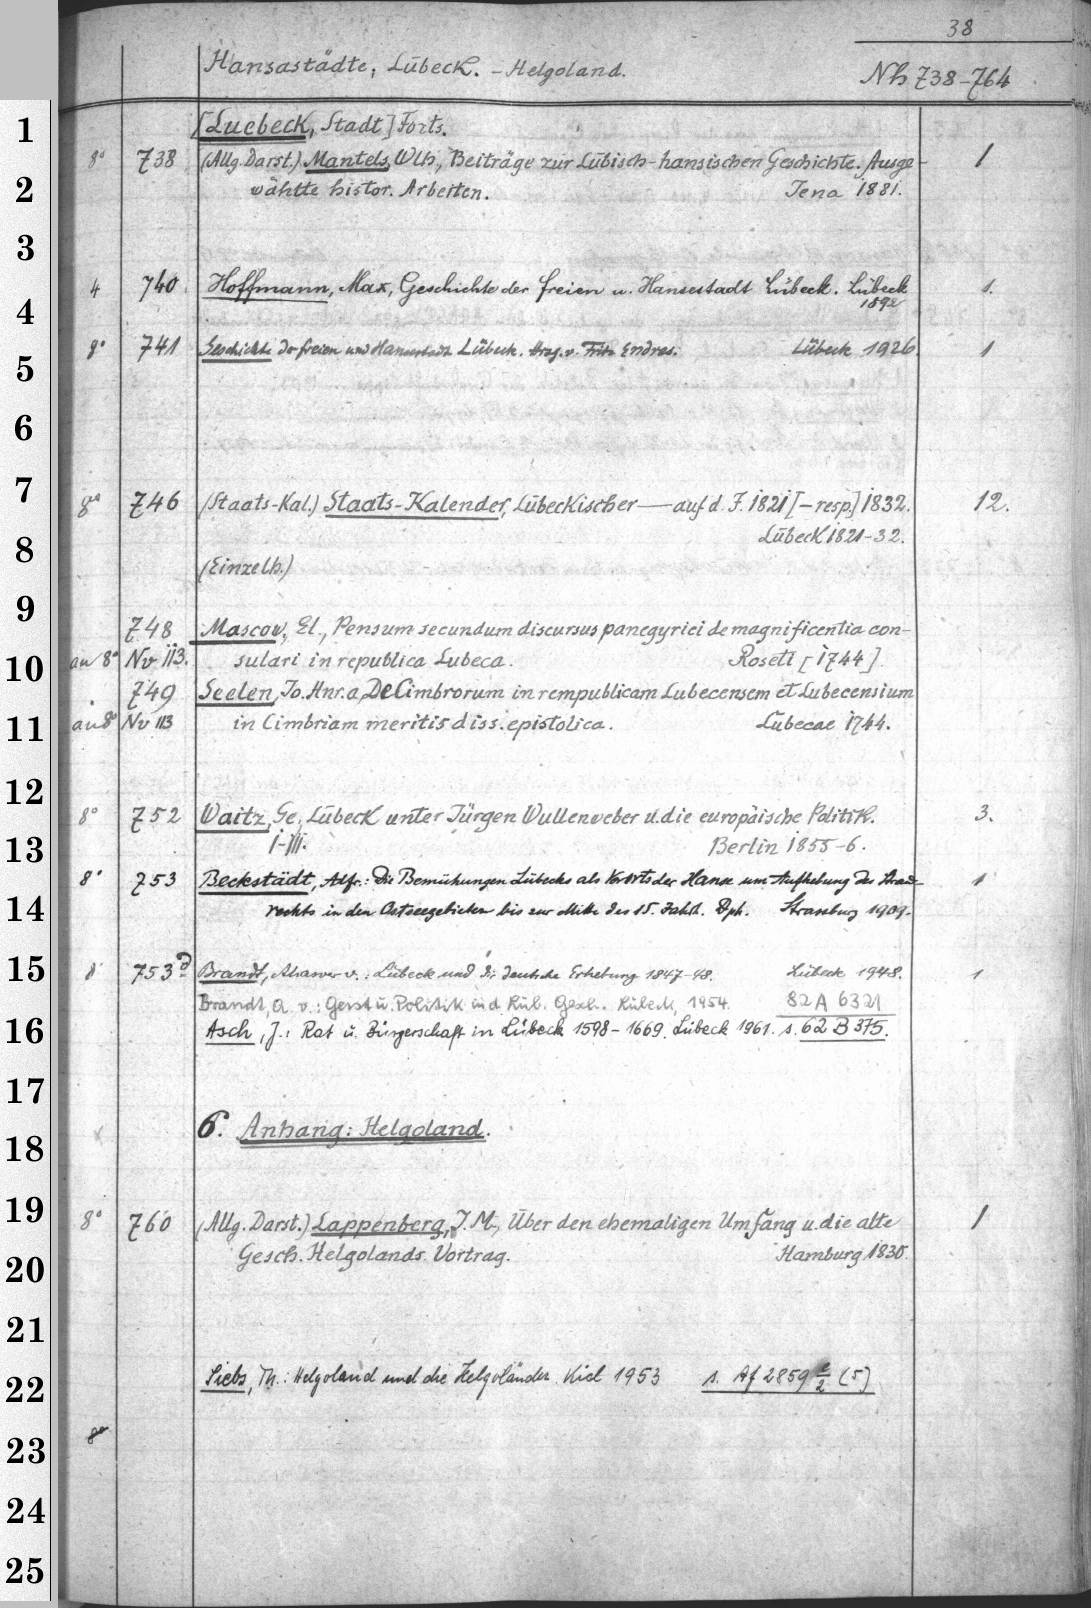 38
Hansastädte, Lübeck. - Helgoland. Nh 738-764
[Luebeck, Stadt] Forts.
8° 738 (Allg. Darst.) Mantels, Wlh., Beiträge zur Lübisch-hansischen Geschichte. Ausge- 1
wählte histor. Arbeiten. Jena 1881.
4 740 Hoffmann, Max, Geschichte der freien u. Hansestadt Lübeck. Lübeck 1.
1892
8° 741 Geschichte der freien und Hansestadt Lübeck. Hrsg. v. Fritz Endres. Lübeck 1926 1
8° 746 (Staats-Kal.) Staats-Kalender, Lübeckischer — auf d. J. 1821 [- resp.] 1832. 12.
Lübeck 1821-32.
(Einzelh.)
748 Mascov, El., Pensum secundum discursus panegyrici de magnificentia con-
an 8° Nv 113. sulari in republica Lubeca. Rosetl [1744]
749 Seelen, Jo. Hnr. a, De Cimbrorum in rempublicam Lubecensem et Lubecensium
an 8° Nv 113 in Cimbriam meritis diss. epistolica. Lubecae 1744.
8° 752 Waitz, Ge, Lübeck unter Jürgen Wullenweber u. die europäische Politik. 3.
I-III. Berlin 1855-6.
8° 753 Beckstädt, Alfr.: Die Bemühungen Lübecks als Vororts der Hanse um Aufhebung des Strand- 1
rechts in den Ostseegebieten bis zur Mitte des 15. Jahrh. Dph. Strassburg 1909.
8° 753d Brandt, Ahasver v.: Lübeck und die deutsche Erhebung 1847-48. Lübeck 1948. 1
Brandt, A. v.: Geist u. Politik in d. Lüb. Gesch. Lübeck, 1954. 82 A 6321
Asch, J.: Rat u. Bürgerschaft in Lübeck 1598-1669. Lübeck 1961. s. 62 B 375.
6. Anhang: Helgoland.
8° 760 (Allg. Darst.) Lappenberg, J. M., Über den ehemaligen Umfang u. die alte 1
Gesch. Helgolands. Vortrag. Hamburg 1830.
Siebs, Th.: Helgoland und die Helgoländer. Kiel 1953 s. Af 2859 (5)
8°
1
2
3
4
5
6
7
8
9
10
11
12
13
14
15
16
17
18
19
20
21
22
23
24
25